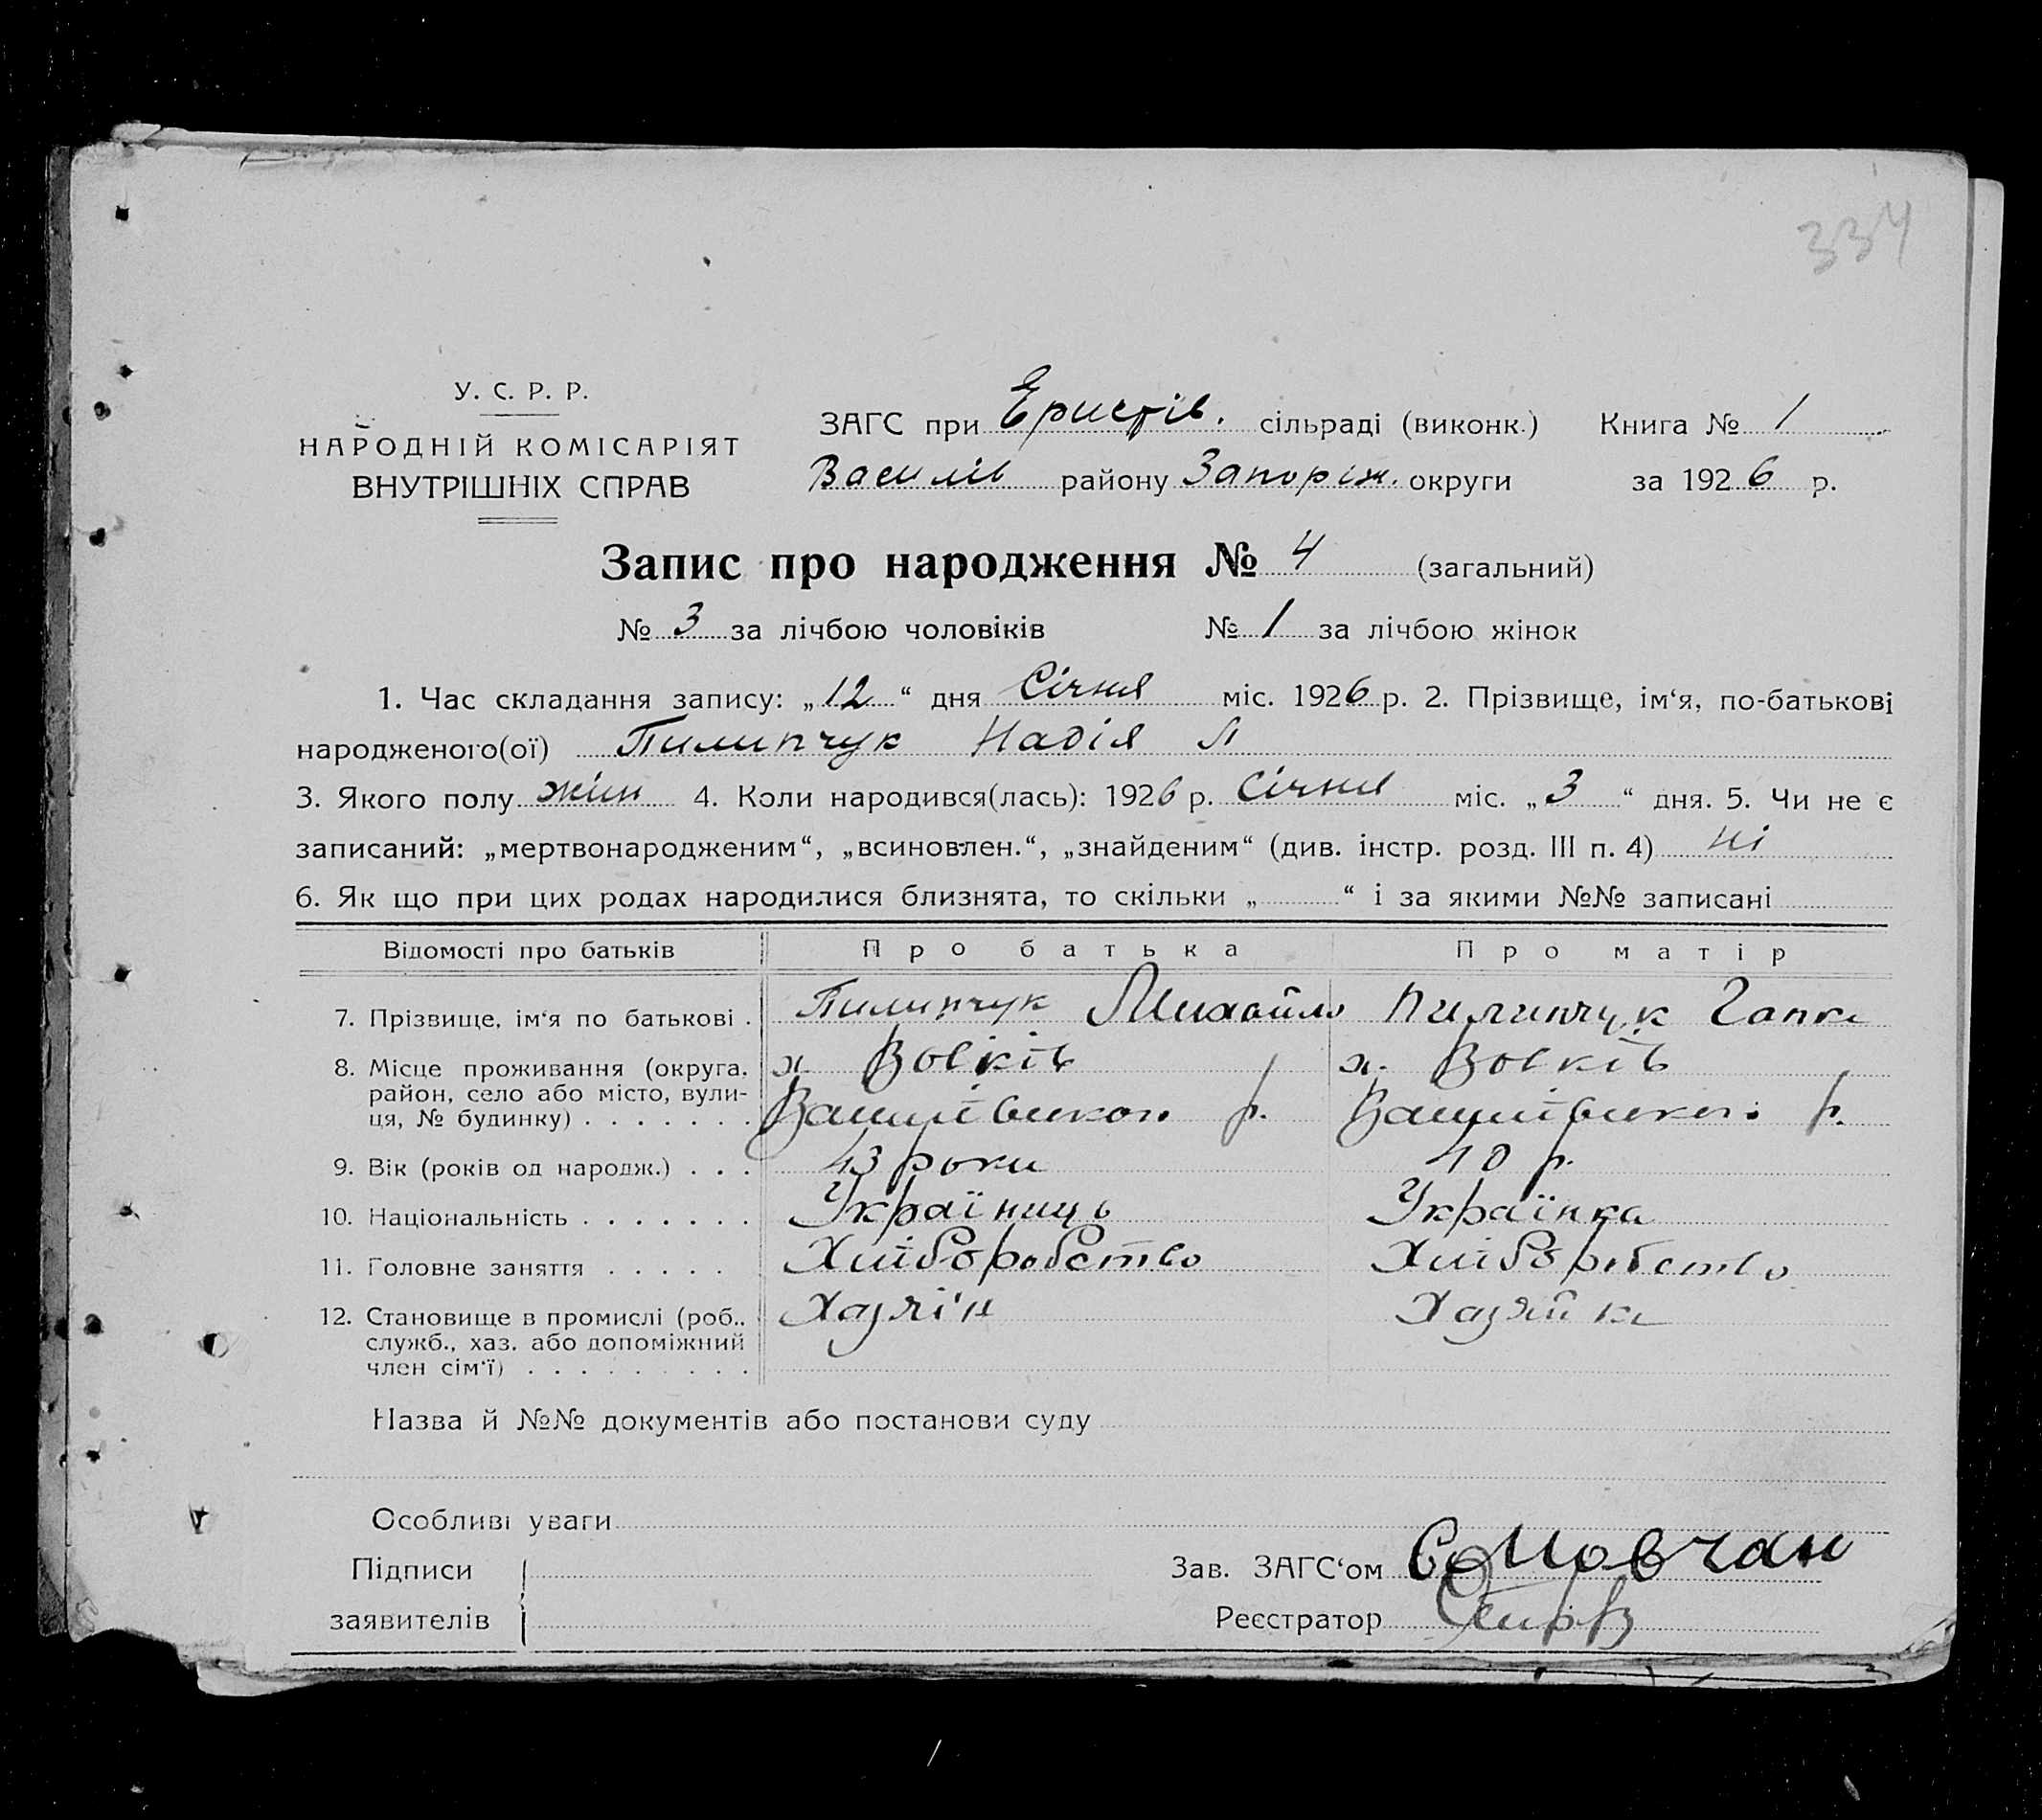 334
У. С. Р. Р.
НАРОДНІЙ КОМІСАРІЯТ
ВНУТРІШНІХ СПРАВ
ЗАГС при Еристів. сільраді (виконк.) Книга № 1
Василів району Запоріж. округи за 1926 р.
Запис про народження № 4 (загальний)
№ 3 за лічбою чоловіків № 1 за лічбою жінок
1. Час складання запису: „12“ дня Січня міс. 1926 р. 2. Прізвище, ім‘я, по-батькові
народженого(ої) Пилипчук Надія
3. Якого полу жін 4. Коли народився(лась): 1926 р. Січня міс. „3“ дня. 5. Чи не є
записаний: „мертвонародженим“, „всиновлен.“, „знайденим“ (див. інстр. розд. III п. 4) ні
6. Як що при цих родах народилися близнята, то скільки „ “ і за якими №№ записані
Відомості про батьків Про батька Про матір
7. Прізвище, ім‘я по батькові . Пилипчук Михайло Пилипчук Гапка
8. Місце проживання (округа, район, село або місто, вулиця, № будинку) . . . . . . . х. Вовків х. Вовків
Василівського р. Василівського р.
9. Вік (років од народж.) . . . 43 роки 40 р.
10. Національність . . . . . . . Україниць Українка
11. Головне заняття . . . . . Хліборобство Хліборобство
12. Становище в промислі (роб., служб., хаз. або допоміжний член сім‘ї) . . . . . . . . . Хазяїн Хазяйка
Назва й №№ документів або постанови суду
Особливі уваги
Підписи
заявителів
Зав. ЗАГС‘ом
Реєстратор